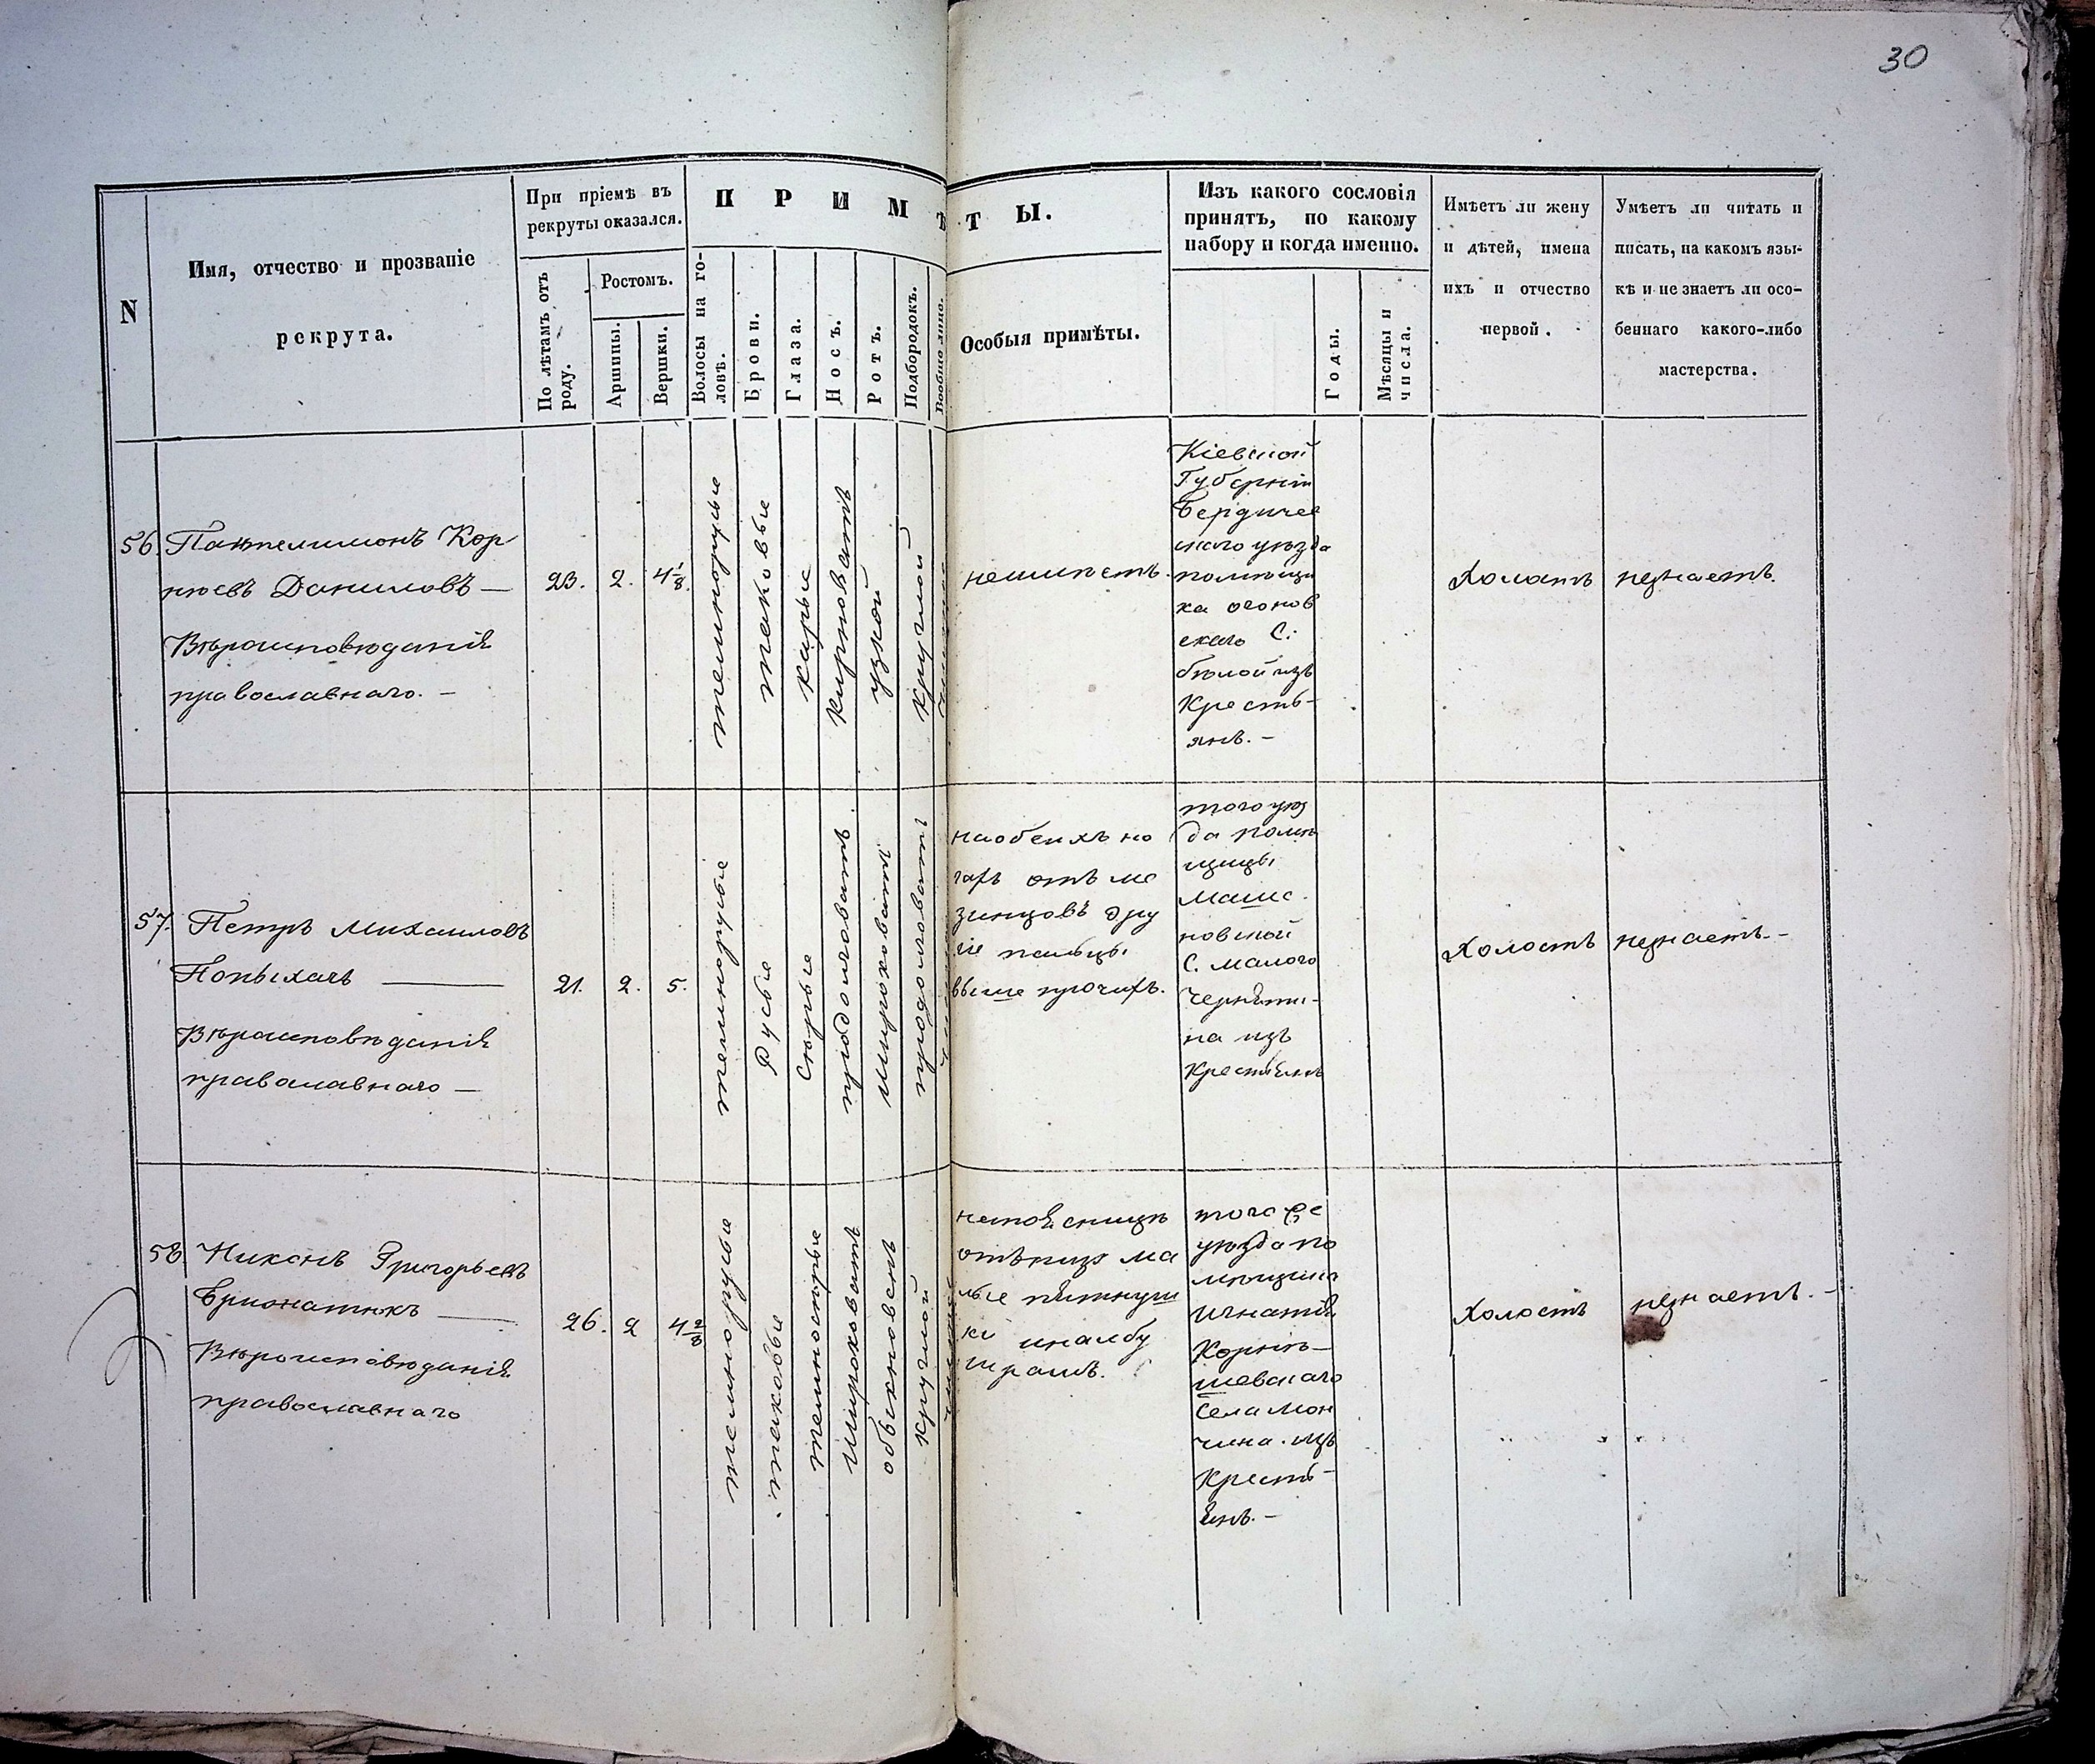 30
N
Имя, отчество и прозваніе
рекрута.
При пріемѣ въ
рекруты оказался.
По лѣтамъ отъ
роду.
Ростомъ.
Аршины.
Вершки.
ПРИМѢТЫ.
Волосы на го-
ловѣ.
Брови.
Глаза.
Носъ.
Ротъ.
Подбородокъ.
Вообще лицо.
Особыя примѣты.
Изъ какого сословія
принятъ, по какому
набору и когда именно.
Годы.
Мѣсяцы и
числа.
Имѣетъ ли жену
и дѣтей, имена
ихъ и отчество
первой.
Умѣетъ ли читать и
писать, на какомъ язы-
кѣ и не знаетъ ли осо-
беннаго какого-либо
мастерства.
56.
Пантелимонъ Кор
нѣевъ Даниловъ —
Вѣроисповѣданія
православнаго. —
23.
2.
4 1/8.
темнорусые
таковые
карые
курноватъ
узкой
круглой
неимѣетъ.
Кіевской
Губерніи
Бердичев
скаго уѣзда
помѣщи
ка
скаго С:
бѣлой изъ
Кресть-
янъ. —
Холостъ
незнаетъ.
57.
Петръ Михаиловъ
Попыхачъ —
Вѣроисповѣданія
православнаго —
21.
2.
5.
темнорусые
Русые
Сѣрые
продолговатъ
широковатъ
продолговатъ
наобеихъ но
гахъ отъ ме
зинцовъ дру
гіе пальцы
выше прочихъ.
того уѣз
да помѣ
щицы
Маше
новской
С. Малого
Черняти-
на изъ
Крестьянъ
Холостъ
незнаетъ. —
58.
Никонъ Григорьевъ
—
Вѣроисповѣданія
православнаго
26.
2
4 2/8
темнорусые
таковые
темносѣрые
широковатъ
обыкновенъ
круглой
ма
лые пятнуш
ки иналбу
шрамъ.
тогоже
уѣзда по
мѣщика
Игнатія
села Мон
чина. изъ
Кресть-
янъ. —
Холостъ
незнаетъ. —